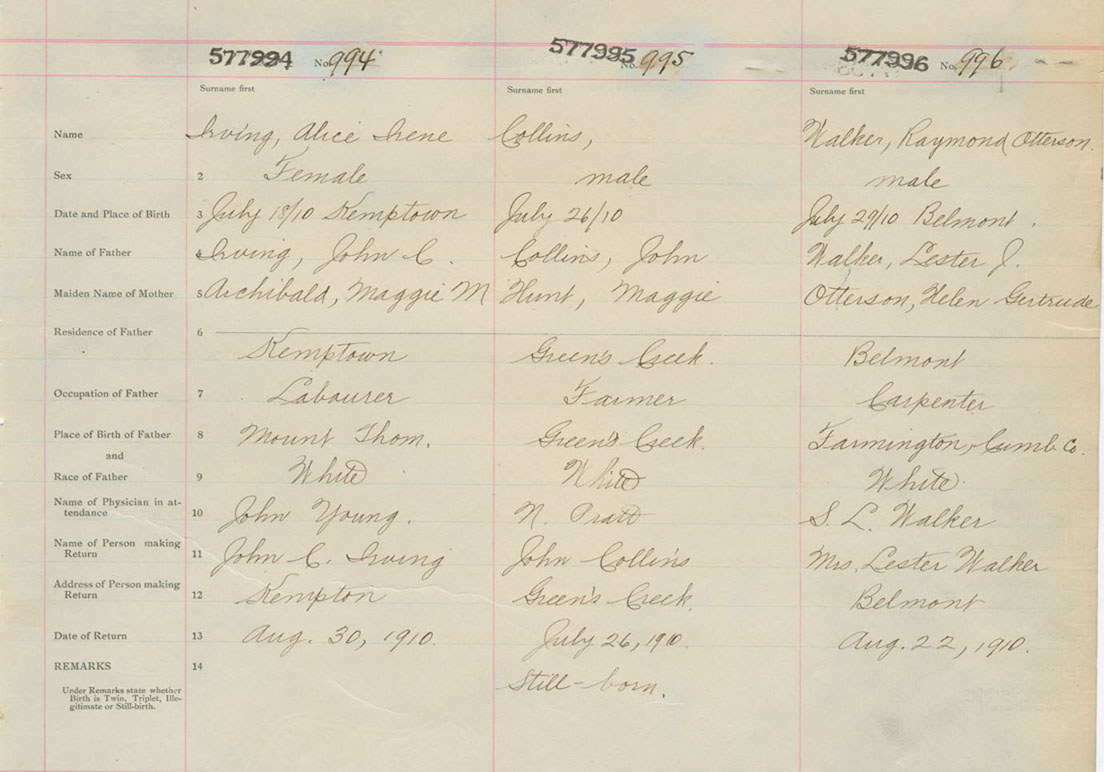 577994 No. 994 577995 No. 995 577996 No. 996
Surname first Surname first Surname first
Name Irving, Alice Irene Collins, Walker, Raymond Otterson.
Sex 2 Female male male
Date and Place of Birth 3 July 18/10 Kemptown July 26/10 July 29/10 Belmont.
Name of Father 4 Irving, John C. Collins, John Walker, Lester J.
Maiden Name of Mother 5 Archibald, Maggie M Hunt, Maggie Otterson, Helen Gertrude
Residence of Father 6
Kemptown Green's Creek. Belmont
Occupation of Father 7 Labourer Farmer Carpenter
Place of Birth of Father 8 Mount Thom. Green's Creek. Farmington, Cumb. Co.
and
Race of Father 9 White White White
Name of Physician in at-
tendance 10 John Young. N. Pratt S. L. Walker
Name of Person making
Return 11 John C. Irving John Collins Mrs. Lester Walker
Address of Person making
Return 12 Kempton Green's Creek. Belmont
Date of Return 13 Aug. 30, 1910. July 26, 1910. Aug. 22, 1910.
REMARKS 14
Still-born.
Under Remarks state whether
Birth is Twin, Triplet, Ille-
gitimate or Still-birth.